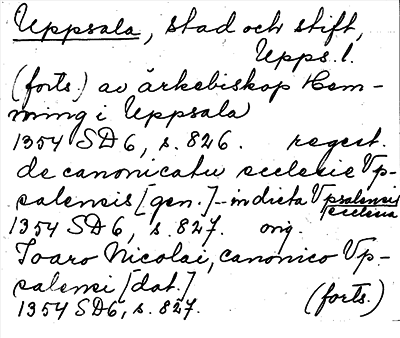 Uppsala, stad och stift,
Upps. l.
(forts.) av ärkebiskop Hem-
ming i Uppsala
1354 SD 6, s. 826. regest.
de canonicatu ecclesie Vp-
salensis [gen.] - in dicta Vpsalensi
ecclesia
1354 SD 6, s. 827. orig.
Ioaro Nicolai, canonico Vp-
salensi [dat.]
1354 SD 6, s. 827. (forts.)